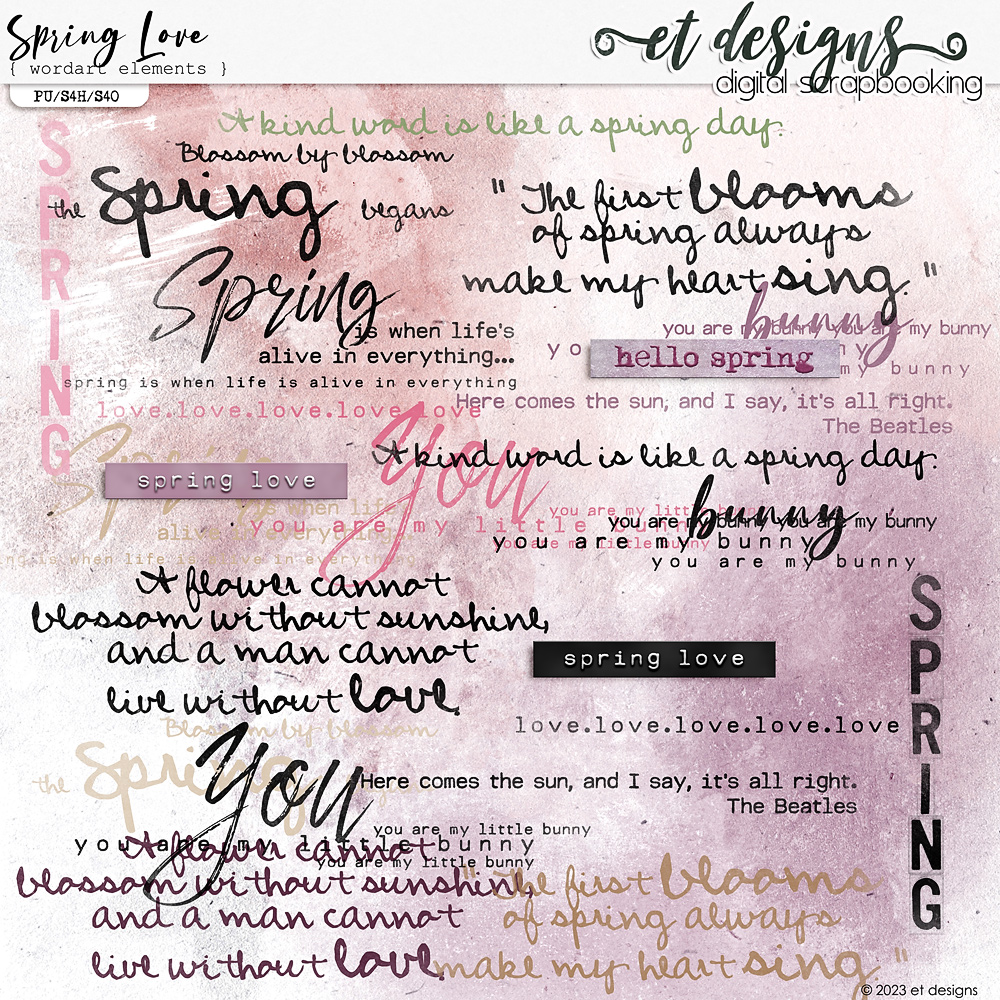 Spring Love
{ wordart elements }
PU/S4H/S4O
et designs
digital scrapbooking
SPRING
A kind word is like a spring day.
Blossom by blossom
the Spring begans
" The first blooms
of spring always
make my heart sing. "
Spring
is when life's
alive in everything...
spring is when life is alive in everything
love.love.love.love.love
bunny
you are my bunny you are my bunny
hello spring
my bunny
Here comes the sun, and I say, it's all right.
The Beatles
A kind word is like a spring day.
Spring
spring love
is when life
alive in everything...
spring is when life is alive in everything
you
you are my little bunny
you are my little bunny
you are my little bunny
bunny
you are my bunny you are my bunny
you are my bunny
you are my bunny
A flower cannot
blossom without sunshine,
and a man cannot
live without love.
spring love
SPRING
love.love.love.love.love
Blossom by blossom
the Spring
you
Here comes the sun, and I say, it's all right.
The Beatles
you are my little bunny
you are my little bunny
you are my little bunny
A flower cannot
blossom without sunshine,
and a man cannot
live without love.
" The first blooms
of spring always
make my heart sing "
© 2023 et designs